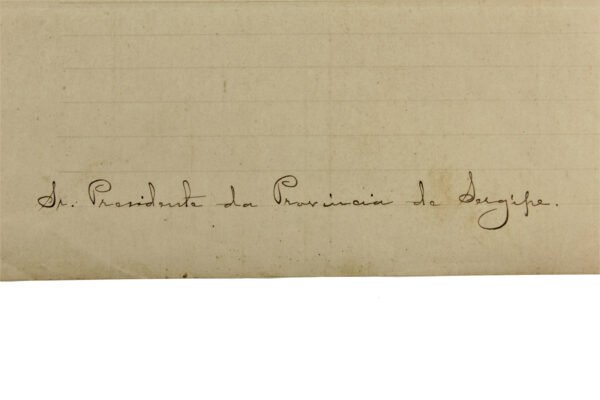 Sr. Presidente da Provincia de Sergipe.